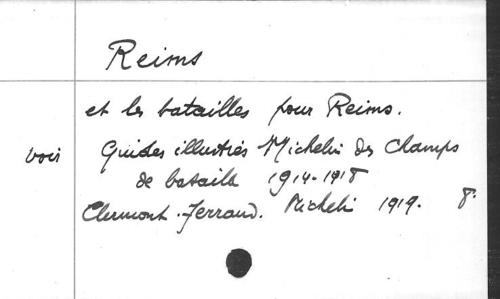 Reims
et les batailles pour Reims.
voir Guides illustrés Michelin des Champs
de bataille 1914-1918
Clermont-Ferrand. Michelin 1919. 8°